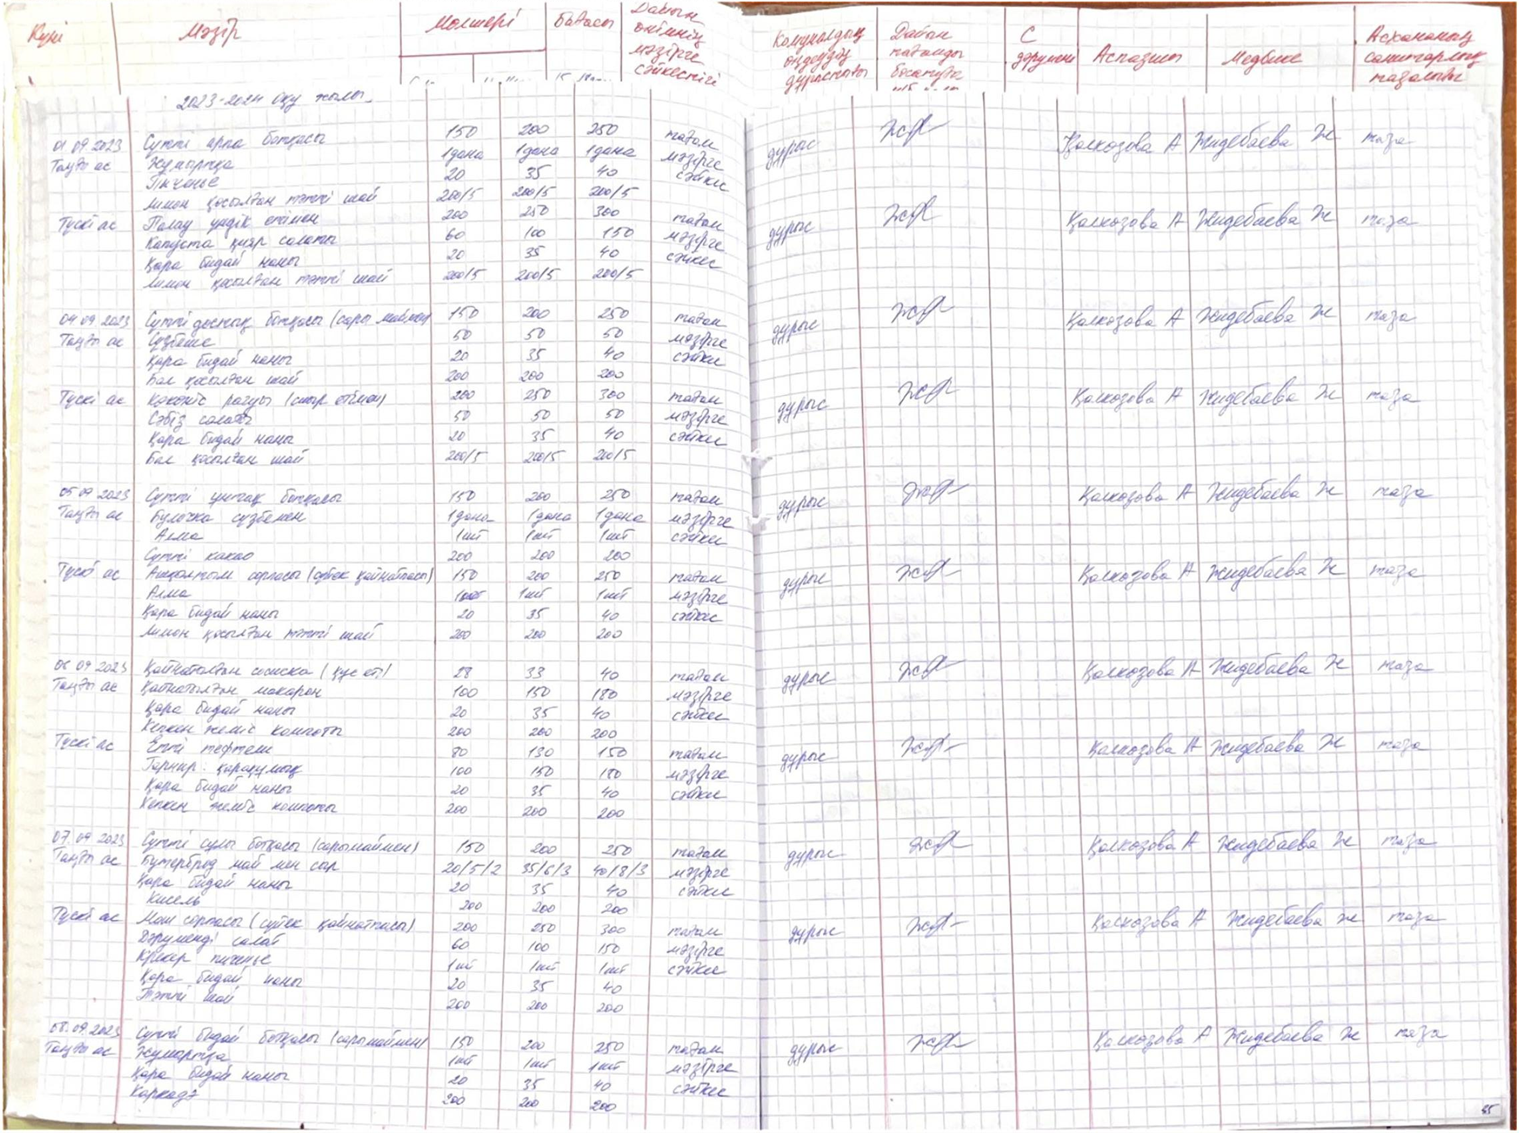 Күні Мәзір Мөлшері Бағасы Дайын өнімнің мәзірге сәйкестігі Дайын тағамды босатуға С дәрумені Аспазшы Медбике Асхананың санитарлық тазалығы
2023-2024 оқу жылы
01 09 2023 Сүтті арпа ботқасы 150 200 250 тағам дұрыс Қалкозова А Жидебаева Ж таза
Таңғы ас Жұмыртқа 1дана 1дана 1дана мәзірге
Печенье 20 35 40 сәйкес
Лимон қосылған тәтті шай 200/5 200/5 200/5
Түскі ас Палау үндік етімен 200 250 300 тағам дұрыс Қалкозова А Жидебаева Ж таза
Капуста қияр салаты 60 100 150 мәзірге
Қара бидай наны 20 35 40 сәйкес
Лимон қосылған тәтті шай 200/5 200/5 200/5
04 09 2023 Сүтті достық ботқасы (сары маймен) 150 200 250 тағам дұрыс Қалкозова А Жидебаева Ж таза
Таңғы ас Сүзбеше 50 50 50 мәзірге
Қара бидай наны 20 35 40 сәйкес
Бал қосылған шай 200 200 200
Түскі ас Көкөніс рагуы (сиыр етімен) 200 250 300 тағам дұрыс Қалкозова А Жидебаева Ж таза
Сәбіз салаты 50 50 50 мәзірге
Қара бидай наны 20 35 40 сәйкес
Бал қосылған шай 200/5 200/5 200/5
05 09 2023 Сүтті ұнтақ ботқасы 150 200 250 тағам дұрыс Қалкозова А Жидебаева Ж таза
Таңғы ас Булочка сүзбемен 1дана 1дана 1дана мәзірге
Алма 1шт 1шт 1шт сәйкес
Сүтті какао 200 200 200
Түскі ас сорпасы (сүйек қайнатпасы) 150 200 250 тағам дұрыс Қалкозова А Жидебаева Ж таза
Алма 1шт 1шт 1шт мәзірге
Қара бидай наны 20 35 40 сәйкес
Лимон қосылған тәтті шай 200 200 200
06 09 2023 Қайнатылған сосиска (құс еті) 28 33 40 тағам дұрыс Қалкозова А Жидебаева Ж таза
Таңғы ас Қайнатылған макарон 100 150 180 мәзірге
Қара бидай наны 20 35 40 сәйкес
Кепкен жеміс компоты 200 200 200
Түскі ас Етті тефтели 80 130 150 тағам дұрыс Қалкозова А Жидебаева Ж таза
Гарнир: қарақұмық 100 150 180 мәзірге
Қара бидай наны 20 35 40 сәйкес
Кепкен жеміс компоты 200 200 200
07 09 2023 Сүтті сұлы ботқасы (сарымаймен) 150 200 250 тағам дұрыс Қалкозова А Жидебаева Ж таза
Таңғы ас Бутерброд май мен сыр 20/5/2 35/6/3 40/8/3 мәзірге
Қара бидай наны 20 35 40 сәйкес
Кисель 200 200 200
Түскі ас Мош сорпасы (сүйек қайнатпасы) 200 250 300 тағам дұрыс Қалкозова А Жидебаева Ж таза
Дәруменді салат 60 100 150 мәзірге
Крекер печенье 1шт 1шт 1шт сәйкес
Қара бидай наны 20 35 40
Тәтті шай 200 200 200
08.09.2023 Сүтті бидай ботқасы (сарымаймен) 150 200 250 тағам дұрыс Қалкозова А Жидебаева Ж таза
Таңғы ас Жұмыртқа 1шт 1шт 1шт мәзірге
Қара бидай наны 20 35 40 сәйкес
Каркадэ 200 200 200